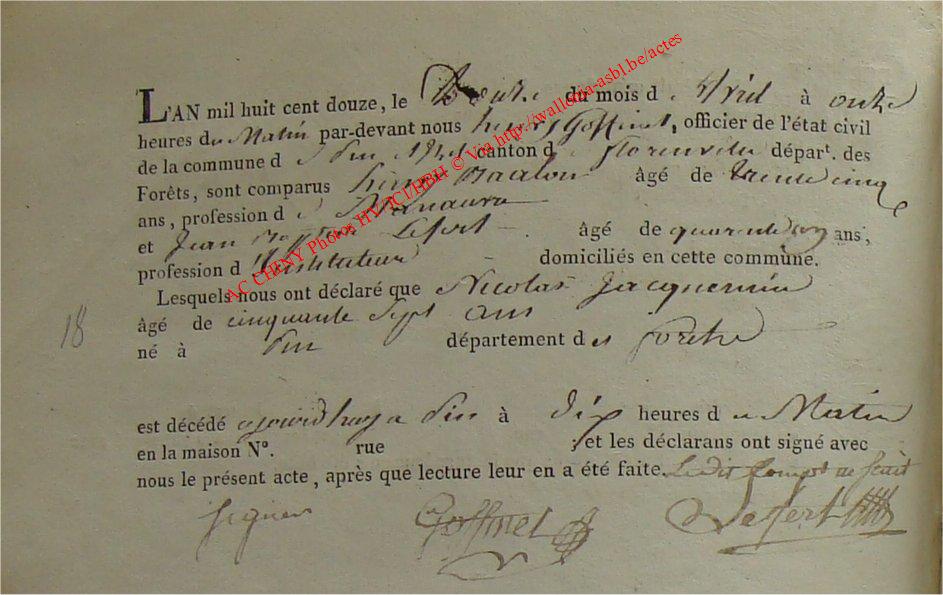 L'AN mil huit cent douze, le douze du mois d'Avril à onze
heures du Matin par-devant nous henry Goffinet, officier de l'état civil
de la commune d canton de florenville départ. des
Forêts, sont comparus henry âgé de trente cinq
ans, profession de Manœuvre
et Jean Baptiste Lefort âgé de quarente ans,
profession d'Instituteur domiciliés en cette commune.
Lesquels nous ont déclaré que Nicolas Jacquemin
18
âgé de cinquante Sept ans
né à pin département des forêts
est décédé ajourdhuy a pin à dix heures du Matin
en la maison Nº. rue ; et les déclarans ont signé avec
nous le présent acte, après que lecture leur en a été faite. Ledit ne scait
signer Goffinet Lefort
AC CHENY Photos HV JCI/HBH © Via http://wallonia-asbl.be/actes